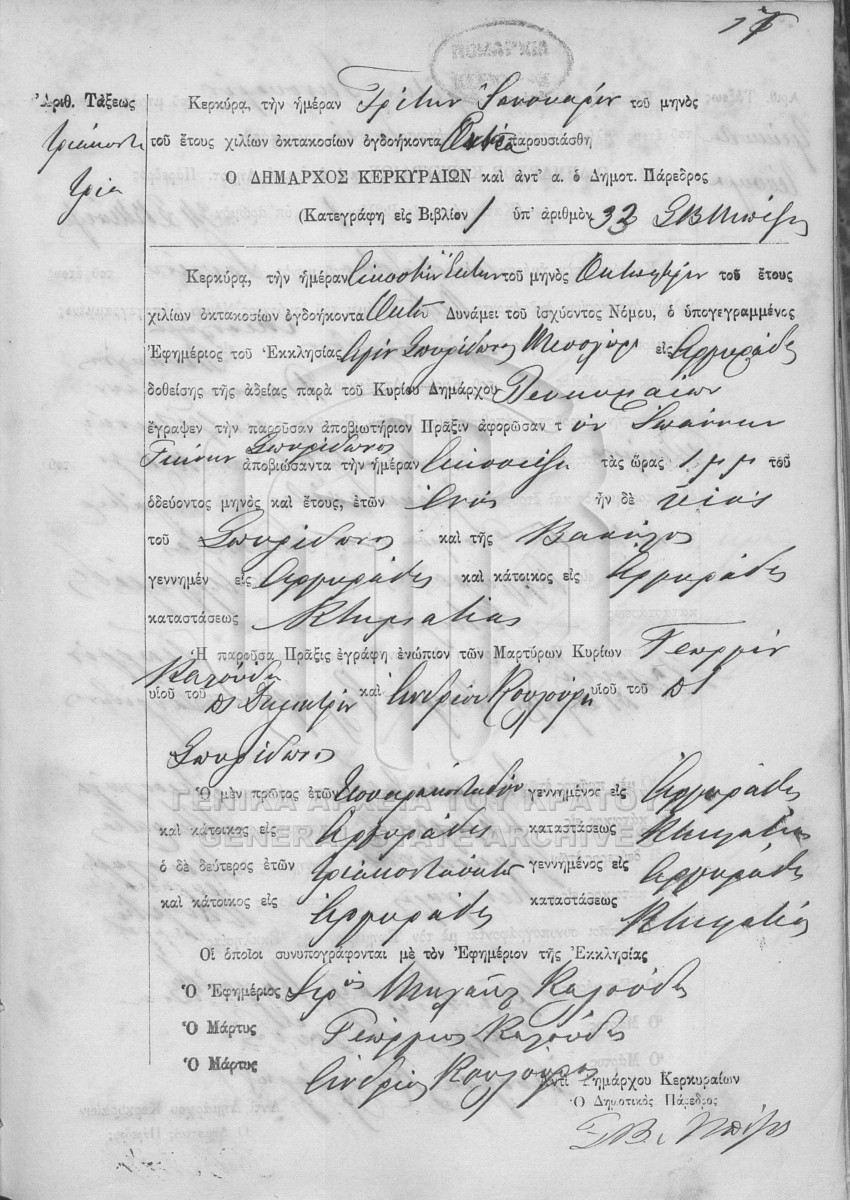 17
Ἀριθ. Τάξεως
τριάκοντα
τρία
Κερκύρα, τὴν ἡμέραν Τρίτην Ἰανουαρίου τοῦ μηνὸς
τοῦ ἔτους χιλίων ὀκτακοσίων ὀγδοήκοντα παρουσιάσθη
Ο ΔΗΜΑΡΧΟΣ ΚΕΡΚΥΡΑΙΩΝ καὶ ἀντ' α. ὁ Δημοτ. Πάρεδρος
(Κατεγράφη εἰς Βιβλίον 1 ὑπ' ἀριθμὸν 33
Κερκύρα, τὴν ἡμέραν Εἰκοστὴν Ἕκτην τοῦ μηνὸς Ὀκτωβρίου τοῦ ἔτους
χιλίων ὀκτακοσίων ὀγδοήκοντα Ὀκτὼ Δυνάμει τοῦ ἰσχύοντος Νόμου, ὁ ὑπογεγραμμένος
Ἐφημέριος τοῦ Ἐκκλησίας Ἁγίου Σπυρίδωνος εἰς Ἀργυράδες
δοθείσης τῆς ἀδείας παρὰ τοῦ Κυρίου Δημάρχου Λευκιμαίων
ἔγραψεν τὴν παροῦσαν ἀποβιωτήριον Πρᾶξιν ἀφορῶσαν τ ὸν Ἰωάννην
Σπυρίδωνος
ἀποβιώσαντα τὴν ἡμέραν εἰκοσιέξ τὰς ὥρας 1 μ μ τοῦ
ὁδεύοντος μηνὸς καὶ ἔτους, ἐτῶν ἑνὸς ἦν δὲ υἱὸς
τοῦ Σπυρίδωνος καὶ τῆς
γεννημέν εἰς Ἀργυράδες καὶ κάτοικος εἰς Ἀργυράδες
καταστάσεως Κτηματίας
Ἡ παροῦσα Πρᾶξις ἐγράφη ἐνώπιον τῶν Μαρτύρων Κυρίων Γεωργίου
Καλούδη
υἱοῦ τοῦ Δημητρίου καὶ Ἀνδρέου Κουλούρη υἱοῦ τοῦ
Σπυρίδωνος
Ὁ μὲν πρῶτος ἐτῶν γεννημένος εἰς Ἀργυράδες
καὶ κάτοικος εἰς Ἀργυράδες καταστάσεως Κτηματίας
ὁ δὲ δεύτερος ἐτῶν τριάκοντα ὀκτὼ γεννημένος εἰς Ἀργυράδες
καὶ κάτοικος εἰς Ἀργυράδες καταστάσεως Κτηματίας
Οἱ ὁποῖοι συνυπογράφονται μὲ τὸν Ἐφημέριον τῆς Ἐκκλησίας
Ὁ Ἐφημέριος Ἱερ εὺς Μιχαὴλ Καλούδης
Ὁ Μάρτυς Γεώργιος Καλούδης
Ὁ Μάρτυς Ἀνδρέας Κουλούρης
Ἀντὶ Δημάρχου Κερκυραίων
Ὁ Δημοτικὸς Πάρεδρος
ΓΕΝΙΚΑ ΑΡΧΕΙΑ ΤΟΥ ΚΡΑΤΟΥΣ
GENERAL STATE ARCHIVES